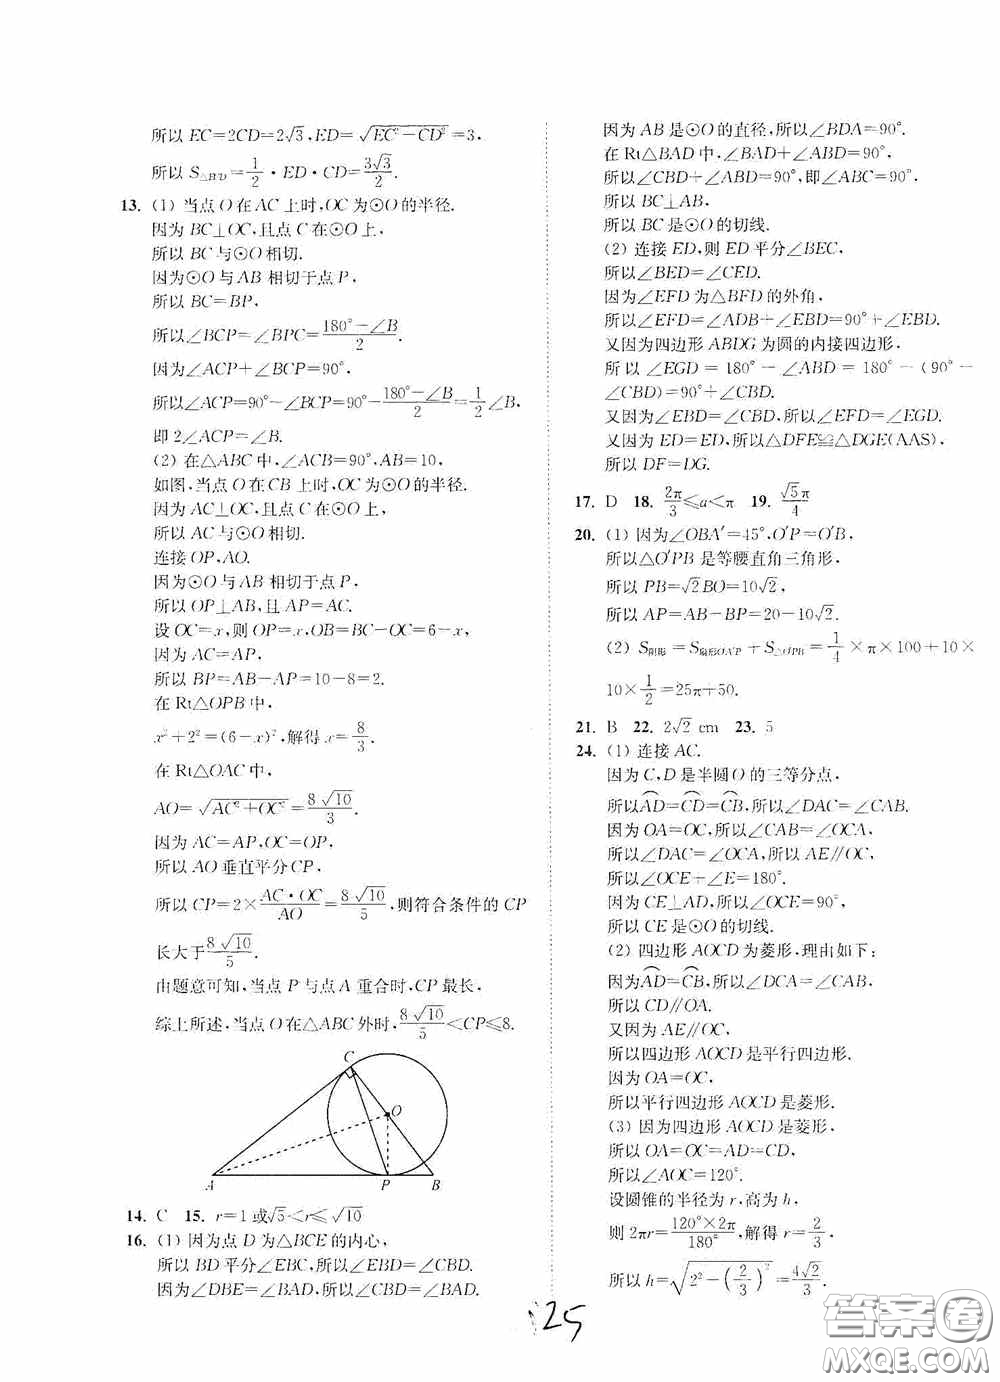 所以 EC=2CD=2√3,ED=√(EC²-CD²)=3,
所以 S△ECD=1/2·ED·CD=3√3/2.
13. (1) 当点 O 在 AC 上时,OC 为⊙O 的半径.
因为 BC⊥OC,且点 C 在⊙O 上,
所以 BC 与⊙O 相切.
因为⊙O 与 AB 相切于点 P,
所以 BC=BP,
所以∠BCP=∠BPC=(180°-∠B)/2.
因为∠ACP+∠BCP=90°,
所以∠ACP=90°-∠BCP=90°-(180°-∠B)/2=1/2∠B,
即 2∠ACP=∠B.
(2) 在△ABC 中,∠ACB=90°,AB=10,
如图,当点 O 在 CB 上时,OC 为⊙O 的半径.
因为 AC⊥OC,且点 C 在⊙O 上,
所以 AC 与⊙O 相切.
连接 OP,AO.
因为⊙O 与 AB 相切于点 P,
所以 OP⊥AB,且 AP=AC.
设 OC=x,则 OP=x,OB=BC-OC=6-x,
因为 AC=AP,
所以 BP=AB-AP=10-8=2.
在 Rt△OPB 中,
x²+2²=(6-x)²,解得 x=8/3.
在 Rt△OAC 中,
AO=√(AC²+OC²)=8√10/3.
因为 AC=AP,OC=OP,
所以 AO 垂直平分 CP,
所以 CP=2×AC·OC/AO=8√10/5,则符合条件的 CP
长大于8√10/5.
由题意可知,当点 P 与点 A 重合时,CP 最长,
综上所述,当点 O 在△ABC 外时,8√10/5<CP≤8.
C
O
A
P
B
14. C 15. r=1 或√5<r≤√10
16. (1) 因为点 D 为△BCE 的内心,
所以 BD 平分∠EBC,所以∠EBD=∠CBD.
因为∠DBE=∠BAD,所以∠CBD=∠BAD.
因为 AB 是⊙O 的直径,所以∠BDA=90°.
在 Rt△BAD 中,∠BAD+∠ABD=90°,
所以∠CBD+∠ABD=90°,即∠ABC=90°,
所以 BC⊥AB,
所以 BC 是⊙O 的切线.
(2) 连接 ED,则 ED 平分∠BEC,
所以∠BED=∠CED.
因为∠EFD 为△BFD 的外角,
所以∠EFD=∠ADB+∠EBD=90°+∠EBD.
又因为四边形 ABDG 为圆的内接四边形,
所以∠EGD=180°-∠ABD=180°-(90°-
∠CBD)=90°+∠CBD.
又因为∠EBD=∠CBD,所以∠EFD=∠EGD.
又因为 ED=ED,所以△DFE≌△DGE(AAS),
所以 DF=DG.
17. D 18. 2π/3≤a<π 19. √5π/4
20. (1) 因为∠OBA′=45°,O′P=O′B,
所以△O′PB 是等腰直角三角形,
所以 PB=√2BO=10√2,
所以 AP=AB-BP=20-10√2.
(2) S阴影=S扇形O′A′P+S△O′PB=1/4×π×100+10×
10×1/2=25π+50.
21. B 22. 2√2 cm 23. 5
24. (1) 连接 AC.
因为 C,D 是半圆 O 的三等分点,
所以A͡D=C͡D=C͡B,所以∠DAC=∠CAB.
因为 OA=OC,所以∠CAB=∠OCA,
所以∠DAC=∠OCA,所以 AE∥OC,
所以∠OCE+∠E=180°.
因为 CE⊥AD,所以∠OCE=90°,
所以 CE 是⊙O 的切线.
(2) 四边形 AOCD 为菱形,理由如下:
因为A͡D=C͡B,所以∠DCA=∠CAB,
所以 CD∥OA.
又因为 AE∥OC,
所以四边形 AOCD 是平行四边形.
因为 OA=OC,
所以平行四边形 AOCD 是菱形.
(3) 因为四边形 AOCD 是菱形,
所以 OA=OC=AD=CD,
所以∠AOC=120°.
设圆锥的半径为 r,高为 h,
则 2πr=120°×2π/180°,解得 r=2/3.
所以 h=√(2²-(2/3)²)=4√2/3.
125
答案圈
MXQE.COM